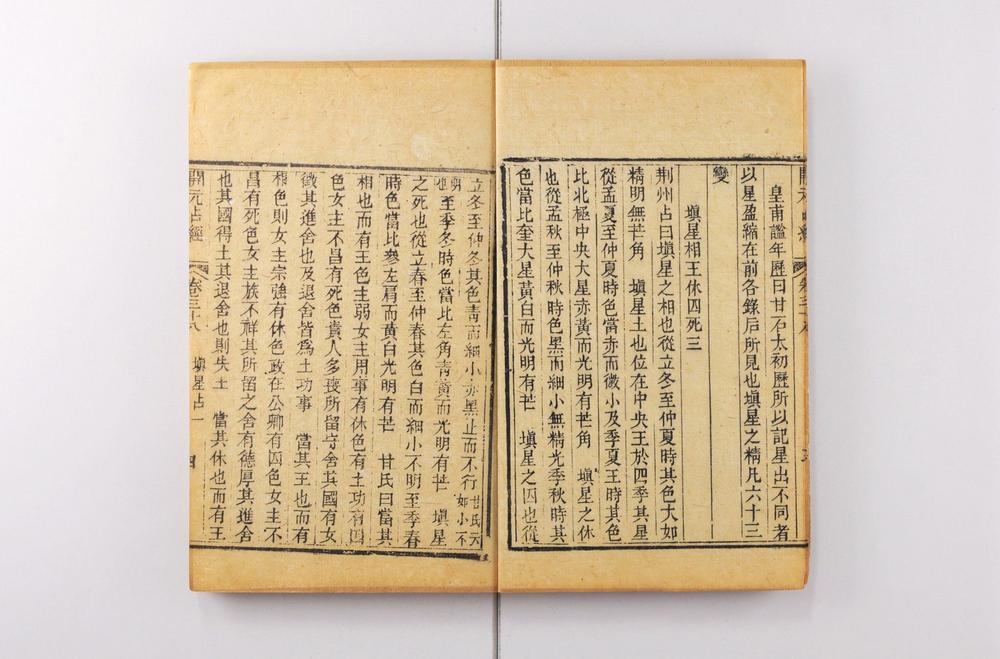 皇甫謐年歷曰甘石太初歷所以記星出不同者
以星盈縮在前各錄后所見也塡星之精凡六十三
變
塡星相王休囚死三
荆州占曰塡星之相也從立冬至仲夏時其色大如
精明無芒角　塡星土也位在中央王於四季其星
從孟夏至仲夏時色當赤而微小及季夏王時其色
比北極中央大星赤黃而光明有芒角　塡星之休
也從孟秋至仲秋時色黑而細小無精光季秋時其
色當比奎大星黃白而光明有芒　塡星之囚也從
立冬至仲冬其色靑而細小亦黑止而不行
甘氏云
如小不
明
也
至季冬時色當比左角靑黃而光明有芒　塡星
之死也從立春至仲春其色白而細小不明至季春
時色當比參左肩而黃白光明有芒　甘氏曰當其
相也而有王色主弱女主用事有休色有土功有囚
色女主不昌有死色貴人多喪所留守舍其國有女
徵其進舍也及退舍皆爲土功事　當其王也而有
相色則女主宗強有休色政在公卿有囚色女主不
昌有死色女主族不祥其所留之舍有德厚其進舍
也其國得土其退舍也則失土　當其休也而有王
開元占經
卷三十八
塡星占一
四